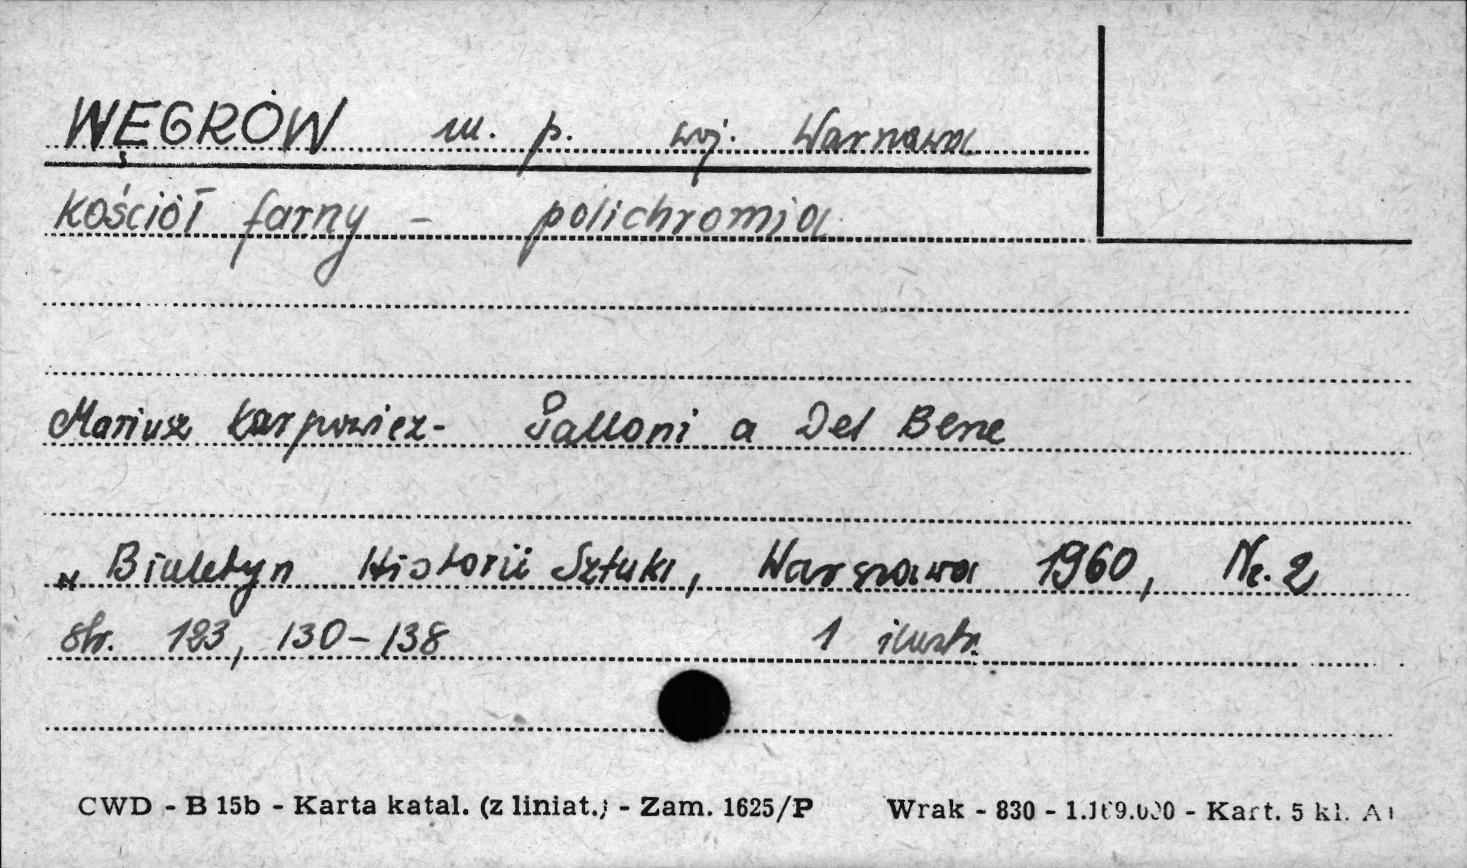 WĘGRÓW m. p. woj. Warszawa
Kościół farny - polichromia
Mariusz Karpowicz - Palloni a Del Bene
„Biuletyn Historii Sztuki, Warszawa 1960, Nr. 2
str. 123, 130-138 1 ilustr.
CWD - B 15b - Karta katal. (z liniat.) - Zam. 1625/P Wrak - 830 - - Kart. 5 kl.